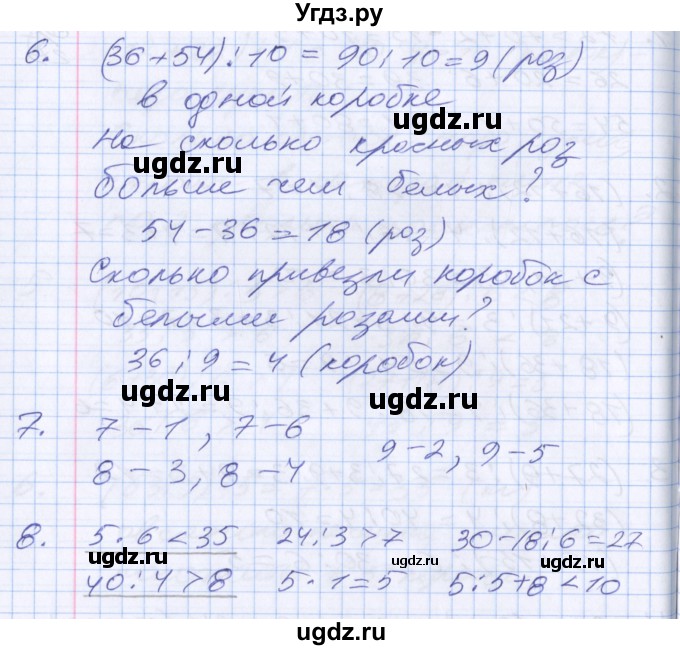 Угдз.ру
6. (36+54):10 = 90:10 = 9 (роз)
в одной коробке
На сколько красных роз
больше чем белых?
54 - 36 = 18 (роз)
Сколько привезли коробок с
белыми розами?
36 : 9 = 4 (коробок)
7. 7 - 1 , 7 - 6
9 - 2 , 9 - 5
8 - 3, 8 - 4
8. 5 · 6 < 35 24 : 3 > 7 30 - 18 : 6 = 27
40 : 4 > 8 5 · 1 = 5 5 : 5 + 8 < 10
ugdz.ru
ugdz.ru
ugdz.ru
ugdz.ru
ugdz.ru
ugdz.ru
ugdz.ru
ugdz.ru
ugdz.ru